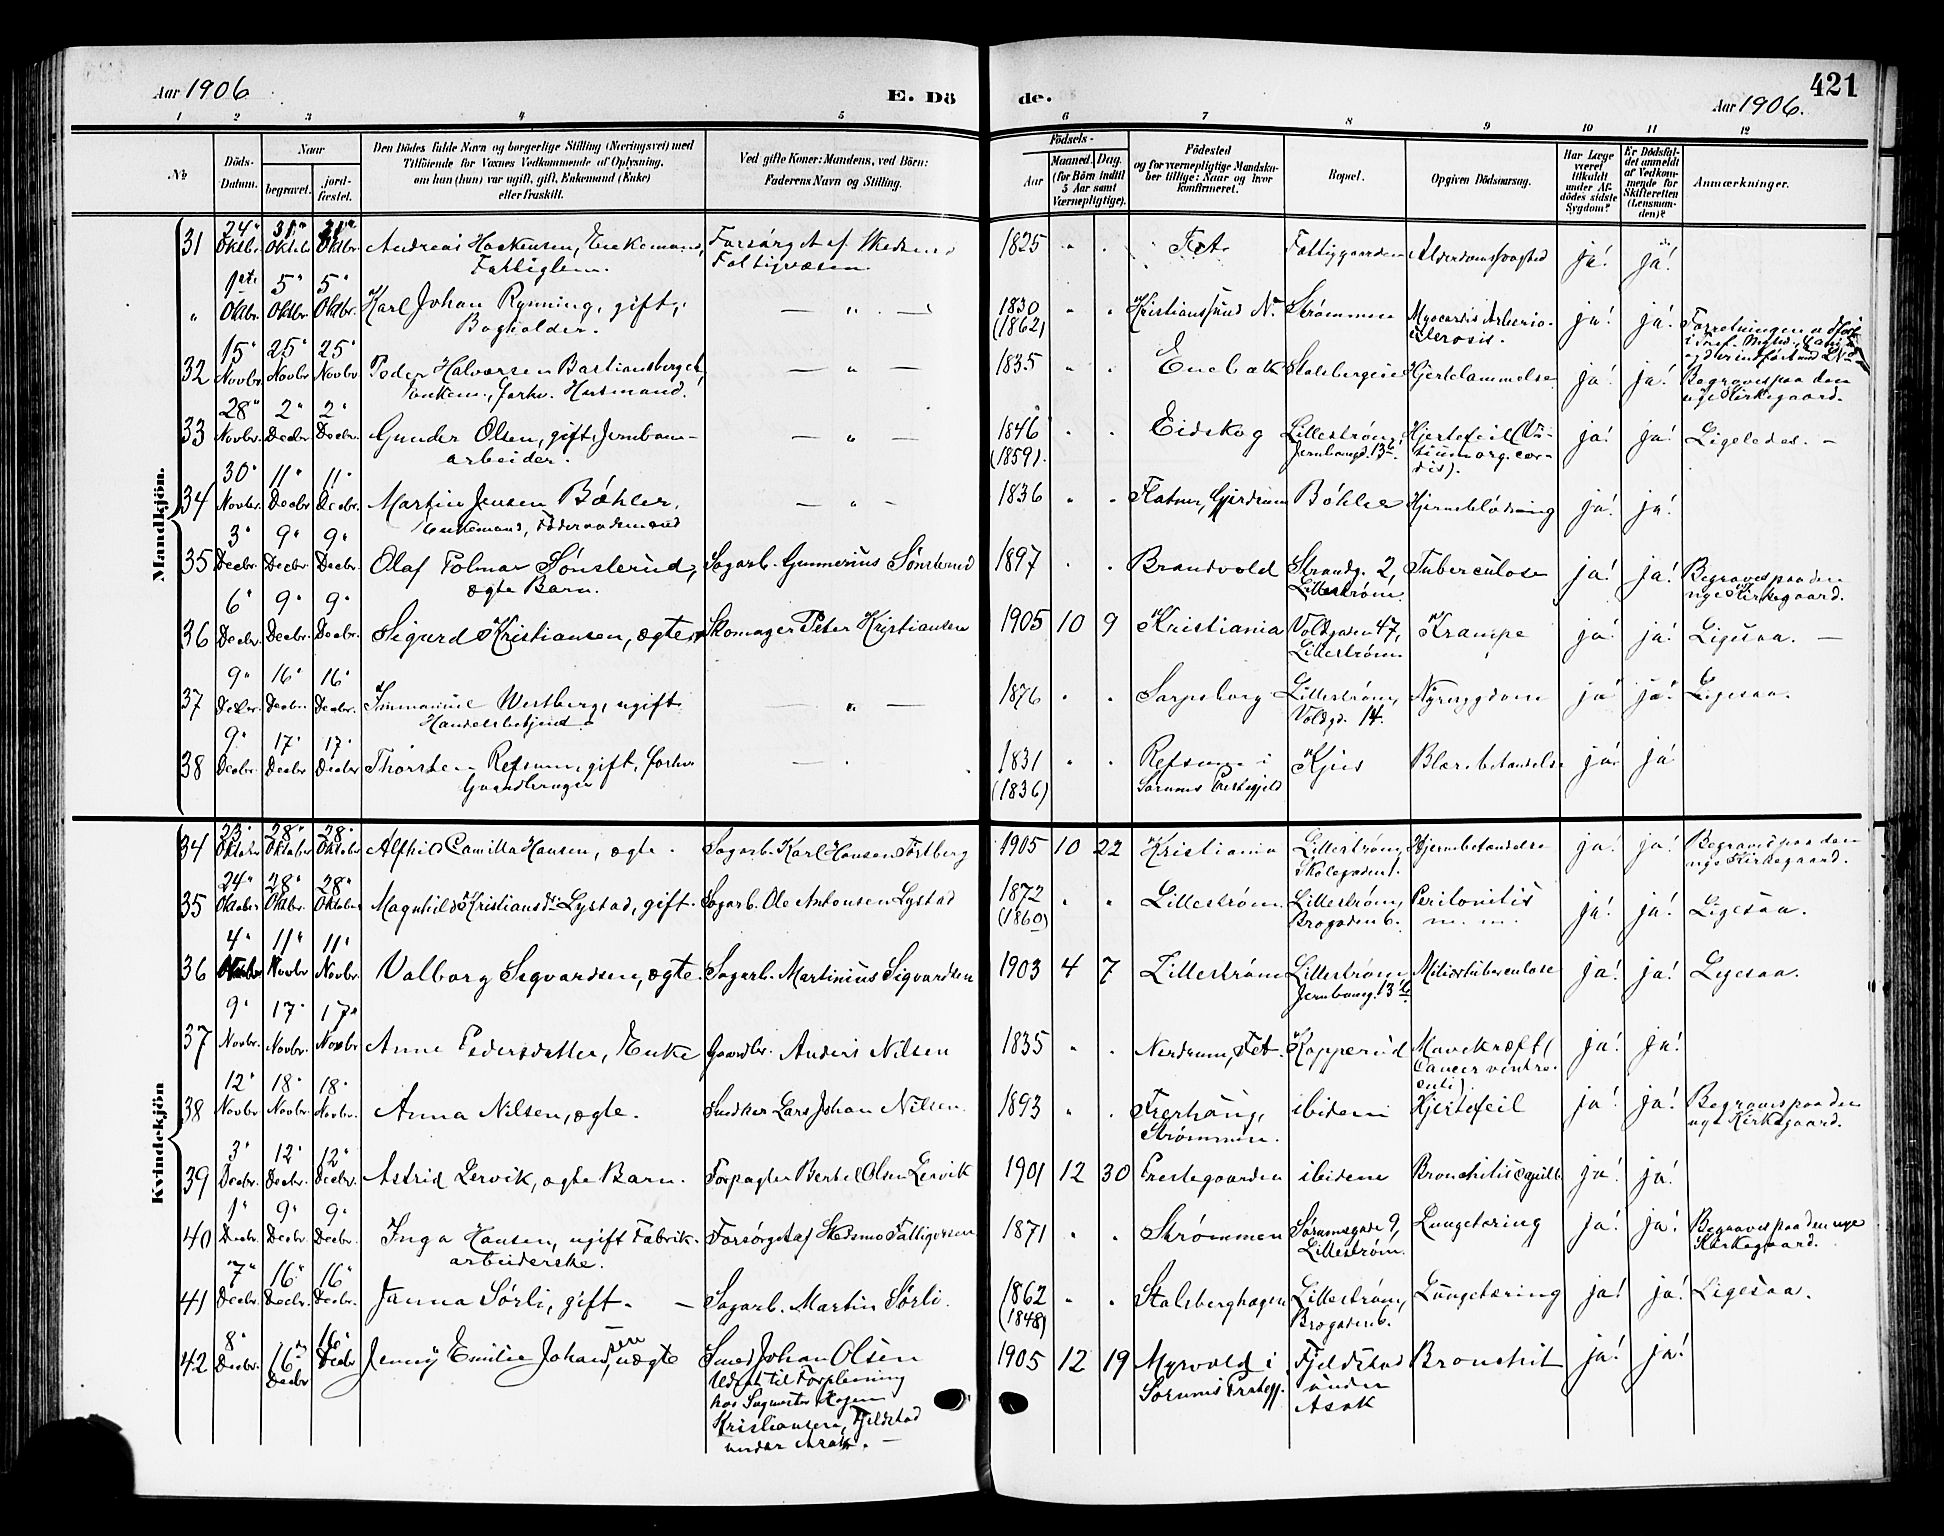 Aar 1906
E. Dö
de.
421
Aar 1906.
1 2 3 4 5 6 7 8 9 10 11 12
№
Döds-
Datum.
Naar
begravet.
jord-
fæstet.
Den Dödes fulde Navn og borgerlige Stilling (Næringsvei) med
Tilföiende for Voxnes Vedkommende af Oplysning,
om han (hun) var ugift, gift, Enkemand (Enke)
eller fraskilt.
Ved gifte Koner: Mandens, ved Börn:
Faderens Navn og Stilling.
Födsels-
Aar
Maaned. Dag.
(for Börn indtil
5 Aar samt
Værnepligtige).
Födested
og for værnepligtige Mandska-
ber tillige: Naar og hvor
konfirmeret.
Bopæl.
Opgiven Dödsaarsag.
Har Læge
været
tilkaldt
under Af-
dödes sidste
Sygdom?
Er Dödsfal-
det anmeldt
af Vedkom-
mende for
Skifteretten
(Lensman-
den)?
Anmærkninger.
Mandkjön.
24" 31" 31"
31 Oktbr. Oktbr Oktbr. Andreas Haekensen, Enkemand, Forsørget af Skedsmo 1825 " . Fet Fattiggaarden Alderdomssvaghed ja! ja!
Fattiglem. Fattigvæsen.
1ste 5" 5"
" Oktbr. Oktbr. Oktbr. Karl Johan Rynning, gift, — " — 1830 " " Kristianssund N. Strømmen Myocardis Arterio- ja! ja!
Bogholder. (1862) sclerosis.
15" 25" 25"
32 Novbr. Novbr Novbr Peder Halvorsen Bastiansberget, — " — 1835 " . Enebak Stalsbergeie Hjertelammelse ja! ja! Begraves paa den
Enkem., forhv. Husmand. nye Kirkegaard.
28" 2" 2"
33 Novbr. Decbr. Decbr. Gunder Olsen, gift, Jernbane- — " — 1846 . . Eidskog Lillestrøm, Hjertefeil (Vi- ja! ja! Ligeledes. —
arbeider. (1859). Jernbaneg. 13b. tium org. cor-
dis).
30" 11" 11"
34 Novbr. Decbr. Decbr. Martin Jensen Bøhler, — " — 1836 " " Flatner, Gjerdrum Bøhler Hjerneblødning ja! ja!
Enkemand, Føderaadsmand
3" 9" 9"
35 Decbr. Decbr. Decbr. Olaf Folmar Sønsterud, Sagarb. Gunnerius Sønsterud 1897 . . Brandvold Strandg. 2, Tuberculose ja! ja! Begraves paa den
ægte Barn. Lillestrøm. nye Kirkegaard.
6" 9" 9"
36 Decbr. Decbr. Decbr. Sigurd Kristiansen, ægte, Skomager Peter Kristiansen 1905 10 9 Kristiania Voldgaden 47, Krampe ja! ja! Ligesaa. —
Lillestrøm
9" 16" 16"
37 Decbr. Decbr Decbr. Immanuel Westberg, ugift — " — 1876 . . Sarpsborg Lillestrøm, Nyresygdom ja! ja! Ligesaa.
Handelsbetjent. Voldgd. 14.
9" 17" 17"
38 Decbr. Decbr. Decbr Thorsten Refsum, gift, forhv. — " 1831 " . Refsum i Kjus Blærebetændelse ja! ja
Gaardbruger (1836) Sørums Prestegjeld
Kvindekjön
23" 28" 28"
34 Oktober Oktober Oktober Alfhild Camilla Hansen, ægte. Sagarb. Karl Hansen Tostberg 1905 10 22 Kristiania Lillestrøm, Hjernebetændelse ja! ja! Begraves paa den
Skolegaden 1. nye Kirkegaard.
24" 28" 28"
35 Oktober Oktbr. Oktober Magnhild Kristiansdr. Lystad, gift. Sagarb. Ole Antonsen Lystad 1872 " . Lillestrøm. Lillestrøm, Peritonitis ja! ja! Ligesaa.
(1860) Brogaden 6. m. m.
4" 11" 11"
36 Novbr Novbr. Valborg Sigvardsen, ægte. Sagarb. Martinius Sigvardsen 1903 4 7 Lillestrøm Lillestrøm, Miliærtuberculose ja! ja! Ligesaa.
Jernbaneg. 13b.
9" 17" 17"
37 Novbr. Novbr. Novbr Anne Pedersdatter, Enke Gaardbr. Anders Nilsen 1835 " . Nerdrum, Fet. Kopperud Mavekræft ja! ja!
(Cancer ventri-
culi).
12" 18" 18"
38 Novbr Novbr. Novbr. Anna Nilsen, ægte. Snedker Lars Johan Nilsen. 1893 " . Frerhaug, ibidem Hjertefeil ja! ja! Begraves paa den
Strømmen. nye Kirkegaard.
3" 12" 12"
39 Decbr. Decbr. Decbr. Astrid Lervik, ægte Barn. Forpagter Bertel Olsen Lervik 1901 12 30 Prestegaarden ibidem Bronchitis capill. ja! ja!
1" 9" 9"
40 Decbr. Decbr. Decbr. Inga Hansen, ugift Fabrik- Forsørget af Skedsmo Fattigvesen 1871 " . Strømmen Sørumsgade 9, Lungetæring ja! ja! Begraves paa den nye
arbeiderske. Lillestrøm. Kirkegaard.
7" 16" 16"
41 Decbr. Decbr. Decbr. Janna Sørli, gift. — Sagarb. Martin Sørli. 1862 " " Stalsberghagen Lillestrøm, Lungetæring ja! ja! Ligesaa.
(1848) Brogaden 6.
8" 16" 16"
42 Decbr. Decbr Decbr Jenny Emilie Johansen, uægte Smed Johan Olsen 1905 12 19 Myrvold i Fjeldstad Bronchit ja! ja!
Udsat til Forpleining Sørums Prestegj. under
hos Sagmester Hagen Asak
Kristiansen, Fjeldstad
under Asak. —